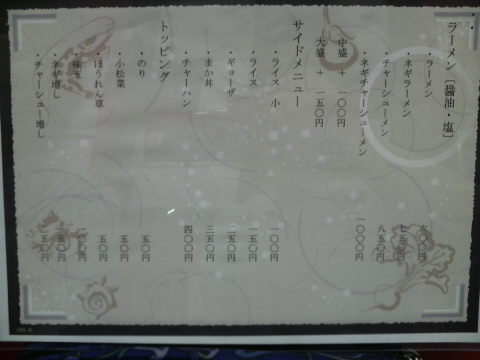 ラーメン［醤油・塩］
・ラーメン 六〇〇円
・ネギラーメン 七五〇円
・チャーシューメン 八五〇円
・ネギチャーシューメン 一〇〇〇円
中盛 ＋ 一〇〇円
大盛 ＋ 一五〇円
サイドメニュー
・ライス 小 一〇〇円
・ライス 一五〇円
・ギョーザ 二五〇円
・まか丼 三五〇円
・チャーハン 四〇〇円
トッピング
・のり 五〇円
・小松菜 五〇円
ほうれん草 五〇円
・味玉 一〇〇円
・ネギ増し 一五〇円
・チャーシュー増し 二五〇円